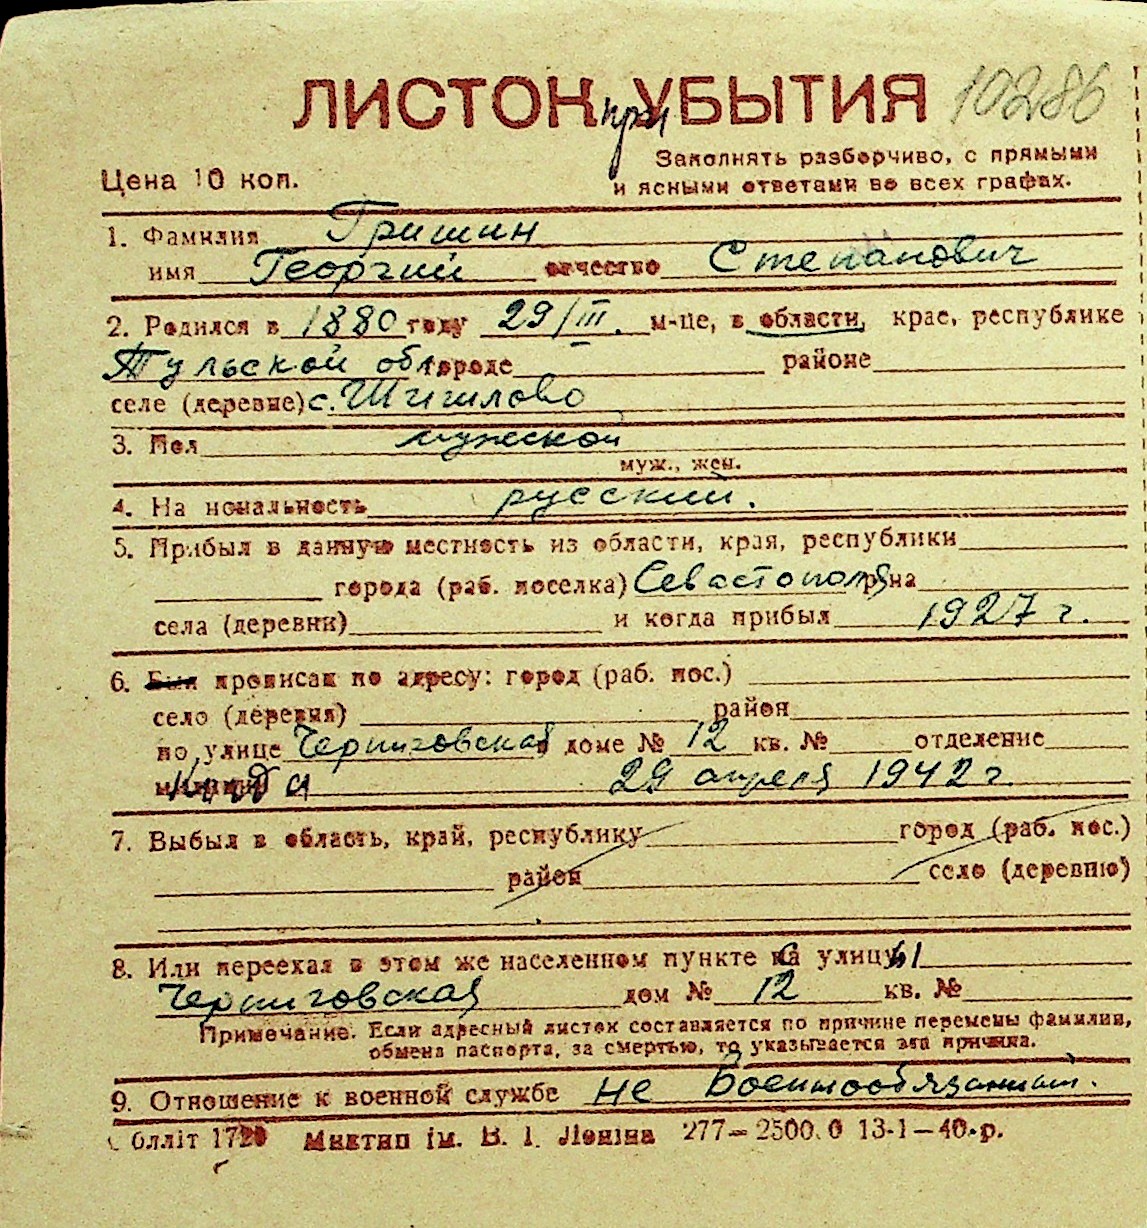 ЛИСТОК УБЫТИЯ 10286
при
Заполнять разборчиво, с прямыми
Цена 10 коп. и ясными ответами во всех графах.
1. Фамилия Гришин
имя Георгий отчество Степанович
2. Родился в 1880 году 29/III. м-це, в области, крае, республике
Тульской обл городе — районе
селе (деревне) с. Шишлово
3. Пол мужской
муж., жен.
4. На иональность русский.
5. Прибыл в данную местность из области, края, республики
города (раб. поселка) Севастополя р-на
села (деревни) и когда прибыл 1927 г.
6. Был прописан по адресу: город (раб. пос.)
село (деревня) район
по улице Черниговская доме № 12 кв. № отделение
милиции 29 апреля 1942 г.
7. Выбыл в область, край, республику город (раб. пос.)
район село (деревню)
8. Или переехал в этом же населенном пункте на улицу
Черниговская дом № 12 кв. №
Примечание. Если адресный листок составляется по причине перемены фамилии,
обмена паспорта, за смертью, то указывается эта причина.
9. Отношение к военной службе не военнообязанный.
Обллiт 1720 Миктип iм. В. І. Ленiна 277—2500.0 13-1—40.р.